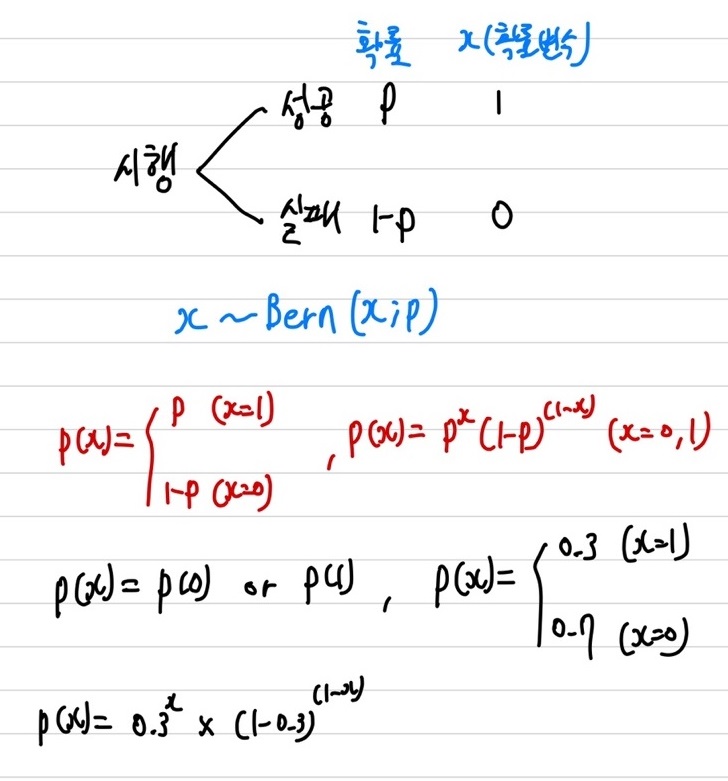 확률 x(확률변수)
성공 p 1
시행
실패 1-p 0
x ~ Bern(x;p)
p(x)= { p (x=1)
1-p (x=0) , p(x)= p^x (1-p)^(1-x) (x=0,1)
p(x)= p(0) or p(1) , p(x)= { 0.3 (x=1)
0.7 (x=0)
p(x)= 0.3^x × (1-0.3)^(1-x)